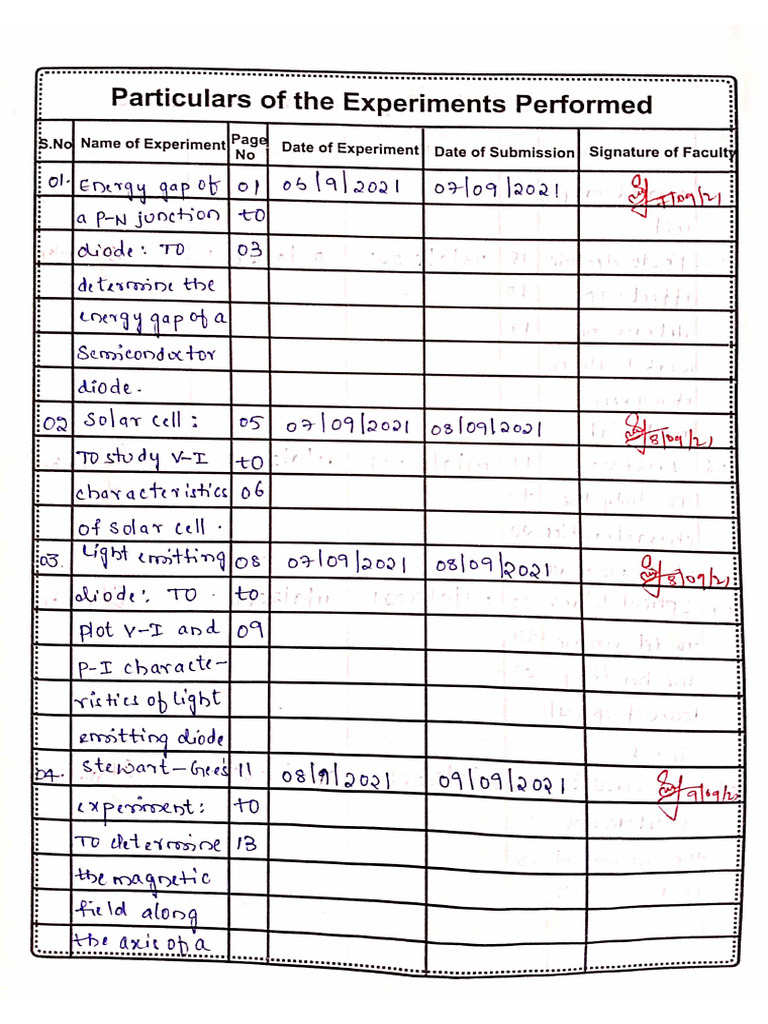 Particulars of the Experiments Performed
S.No Name of Experiment Page No Date of Experiment Date of Submission Signature of Faculty
01. Energy gap of 01 06/9/2021 07/09/2021 7/09/21
a P-N junction to
diode: To 03
determine the
energy gap of a
semiconductor
diode.
02 Solar cell: 05 07/09/2021 08/09/2021 8/09/21
To study V-I to
characteristics 06
of solar cell.
03. Light emitting 08 07/09/2021 08/09/2021 8/09/21
diode: To to
plot V-I and 09
P-I characte-
ristics of light
emitting diode
04. Stewart-Gee's 11 08/9/2021 09/09/2021 9/09/2
experiment: to
To determine 13
the magnetic
field along
the axis of a